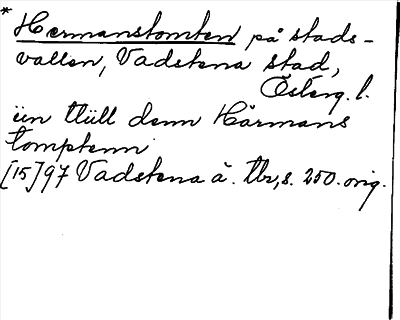 * Hermanstomten på stads-
vallen, Vadstena stad,
Österg. l.
iin tlüll denn Härmans
tomptenn
[15]97 Vadstena ä. tbr, s. 250. orig.